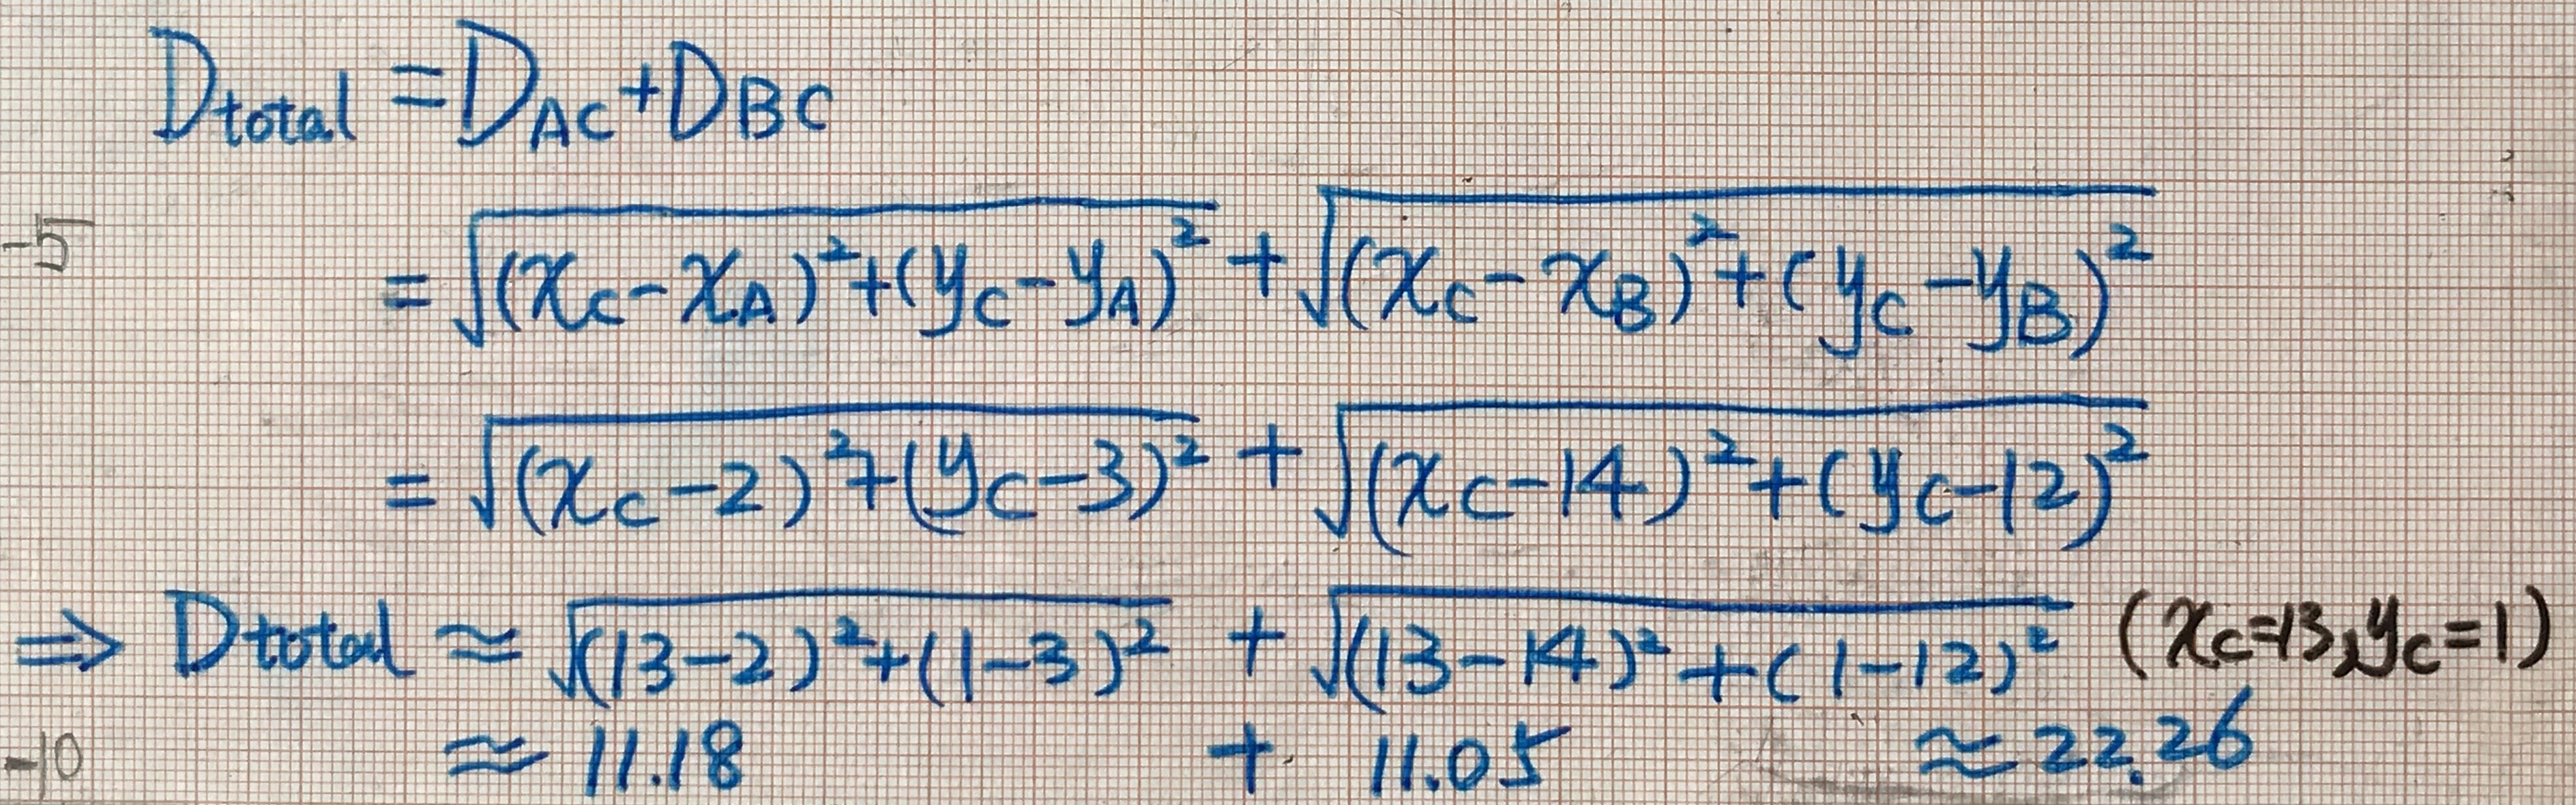 Dtotal = DAC + DBC
-5
= √((xC - xA)² + (yC - yA)²) + √((xC - xB)² + (yC - yB)²)
= √((xC - 2)² + (yC - 3)²) + √((xC - 14)² + (yC - 12)²)
⇒ Dtotal ≈ √((13 - 2)² + (1 - 3)²) + √((13 - 14)² + (1 - 12)²) (xC = 13, yC = 1)
-10 ≈ 11.18 + 11.05 ≈ 22.26